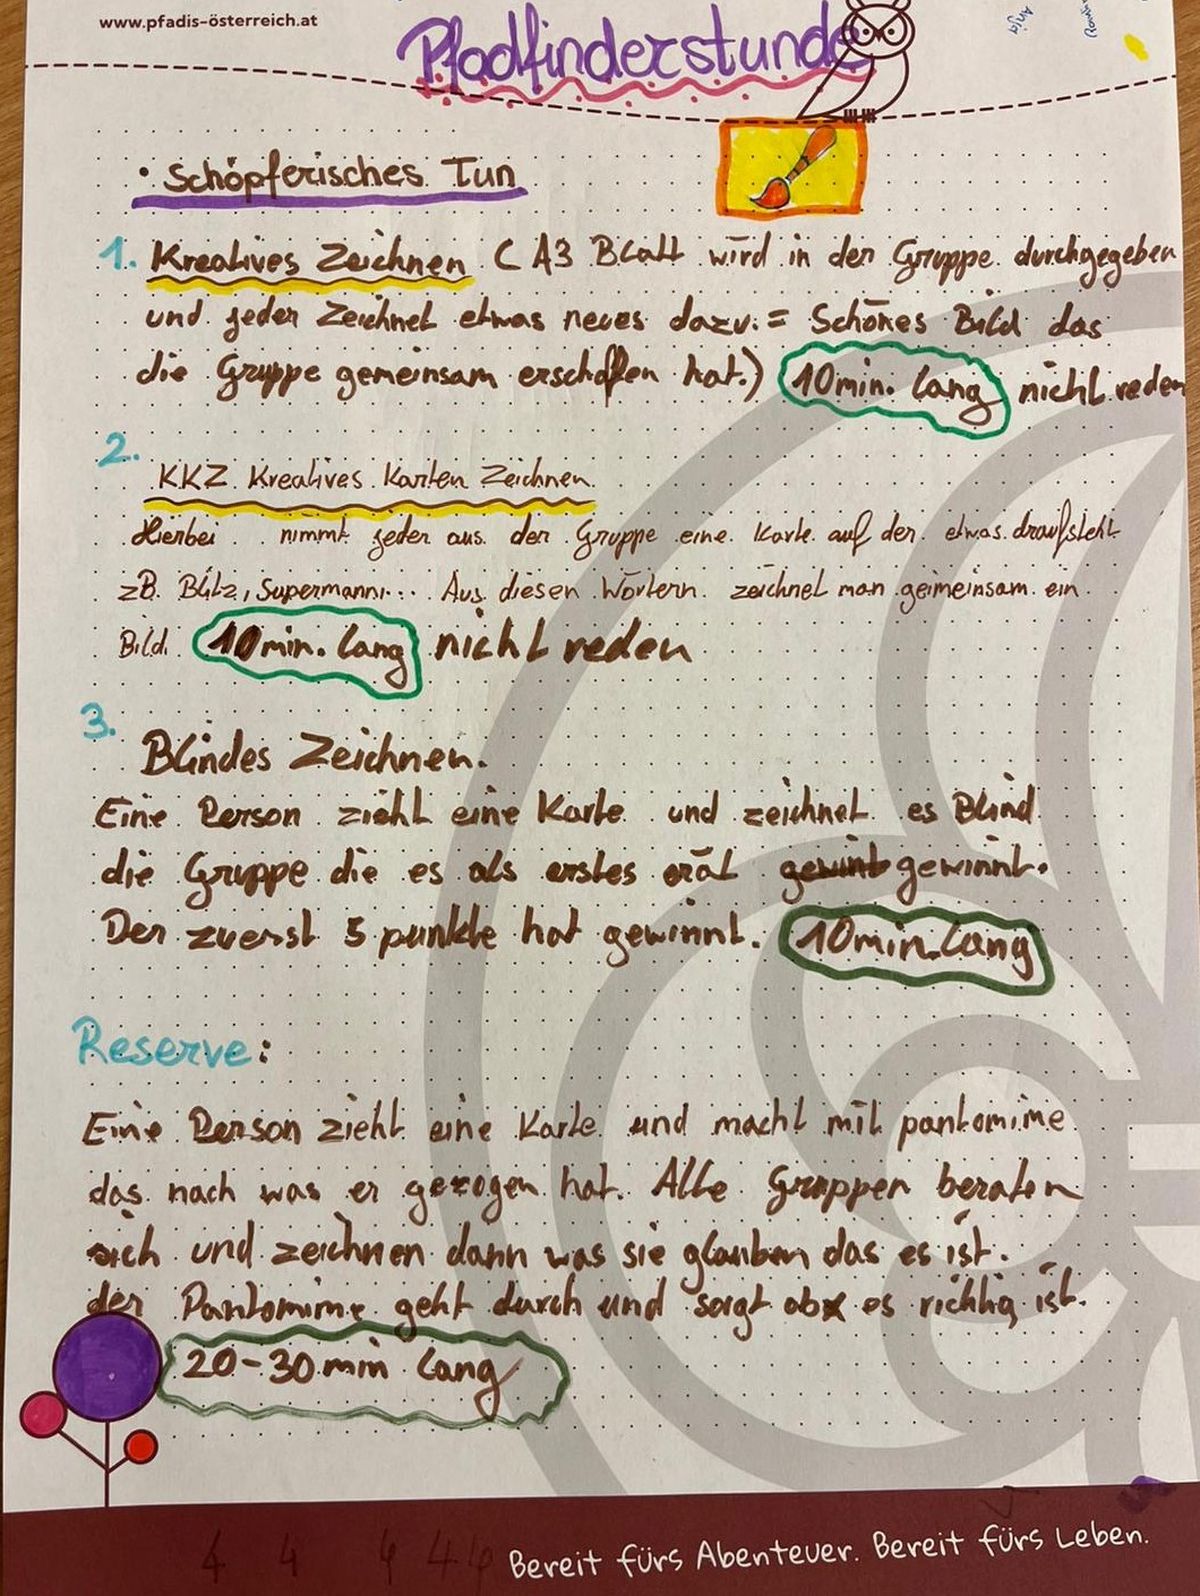 www.pfadis-österreich.at
Pfadfinderstunde
Anja
• Schöpferisches Tun
1. Kreatives Zeichnen ( A3 Blatt wird in der Gruppe durchgegeben
und jeder Zeichnet etwas neues dazu. = Schönes Bild das
die Gruppe gemeinsam erschaffen hat.) 10min. lang nicht reden
2.
KKZ Kreatives Karten Zeichnen
Hierbei nimmt jeder aus der Gruppe eine Karte auf der etwas draufsteht
zB. Blitz, Supermann... Aus diesen Wörtern zeichnet man geimeinsam ein
Bild. 10min. lang nicht reden
3.
Blindes Zeichnen.
Eine Person zieht eine Karte und zeichnet es Blind
die Gruppe die es als erstes erät gewint gewinnt.
Der zuerst 5 punkte hat gewinnt. 10min. lang
Reserve:
Eine Person zieht eine Karte und macht mit pantomime
das nach was er gezogen hat. Alle Gruppen beraten
sich und zeichnen dann was sie glauben das es ist.
der Pantomime geht durch und sagt ob es richtig ist.
20-30 min lang
4 4 4 4 4
Bereit fürs Abenteuer. Bereit fürs Leben.